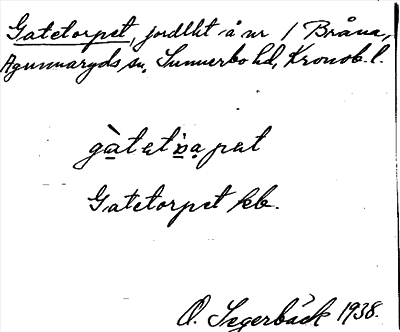 Gatetorpet, jordlht å nr 1 Bråna,
Agunnaryds sn, Sunnerbo hd, Kronob. l.
Gatetorpet kb.
O. Segerbäck 1938.